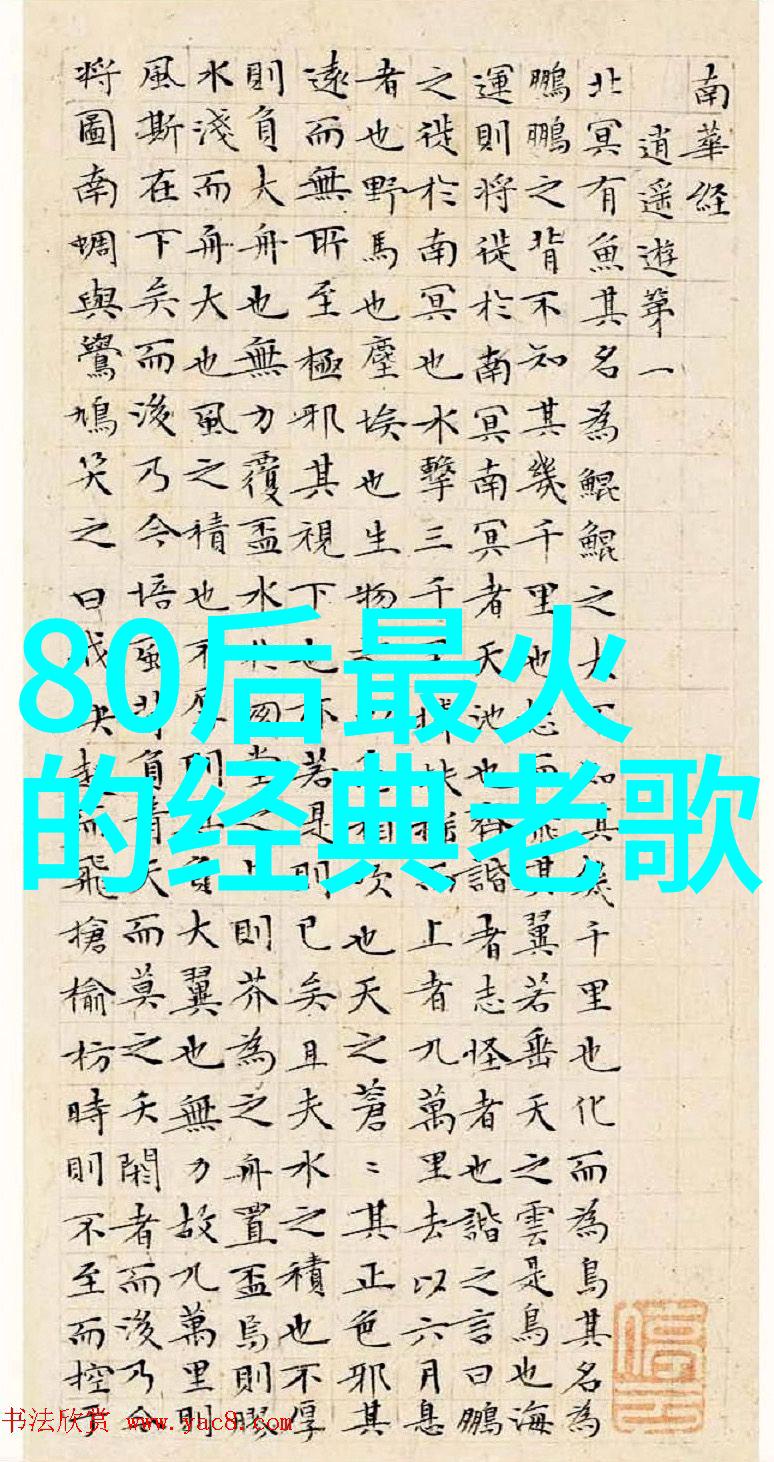 南華経
逍遥遊第一
北冥有魚其名為鯤鯤之大不知其幾千里也化而為鳥其名為
鵬鵬之背不知其幾千里也怒而飛其翼若垂天之雲是鳥也海
運則将徙於南冥南冥者天池也齊諧者志怪者也諧之言曰鵬
之徙於南冥也水擊三千里摶扶摇而上者九萬里去以六月息
者也野馬也塵埃也生物之以息相吹也天之蒼〻其正色邪其
遠而無所至極邪其視下也亦若是則已矣且夫水之積也不厚
則負大舟也無力覆盃水於坳堂之上則芥為之舟置盃焉則膠
水淺而舟大也風之積也不厚則其負大翼也無力故九萬里則
風斯在下矣而後乃今培風背負青天而莫之夭閼者而後乃今
将圖南蜩與鷽鳩笑之曰我决起而飛搶榆枋時則不至而控於
80后最火
的经典老歌
书法欣赏 www.yac8.com